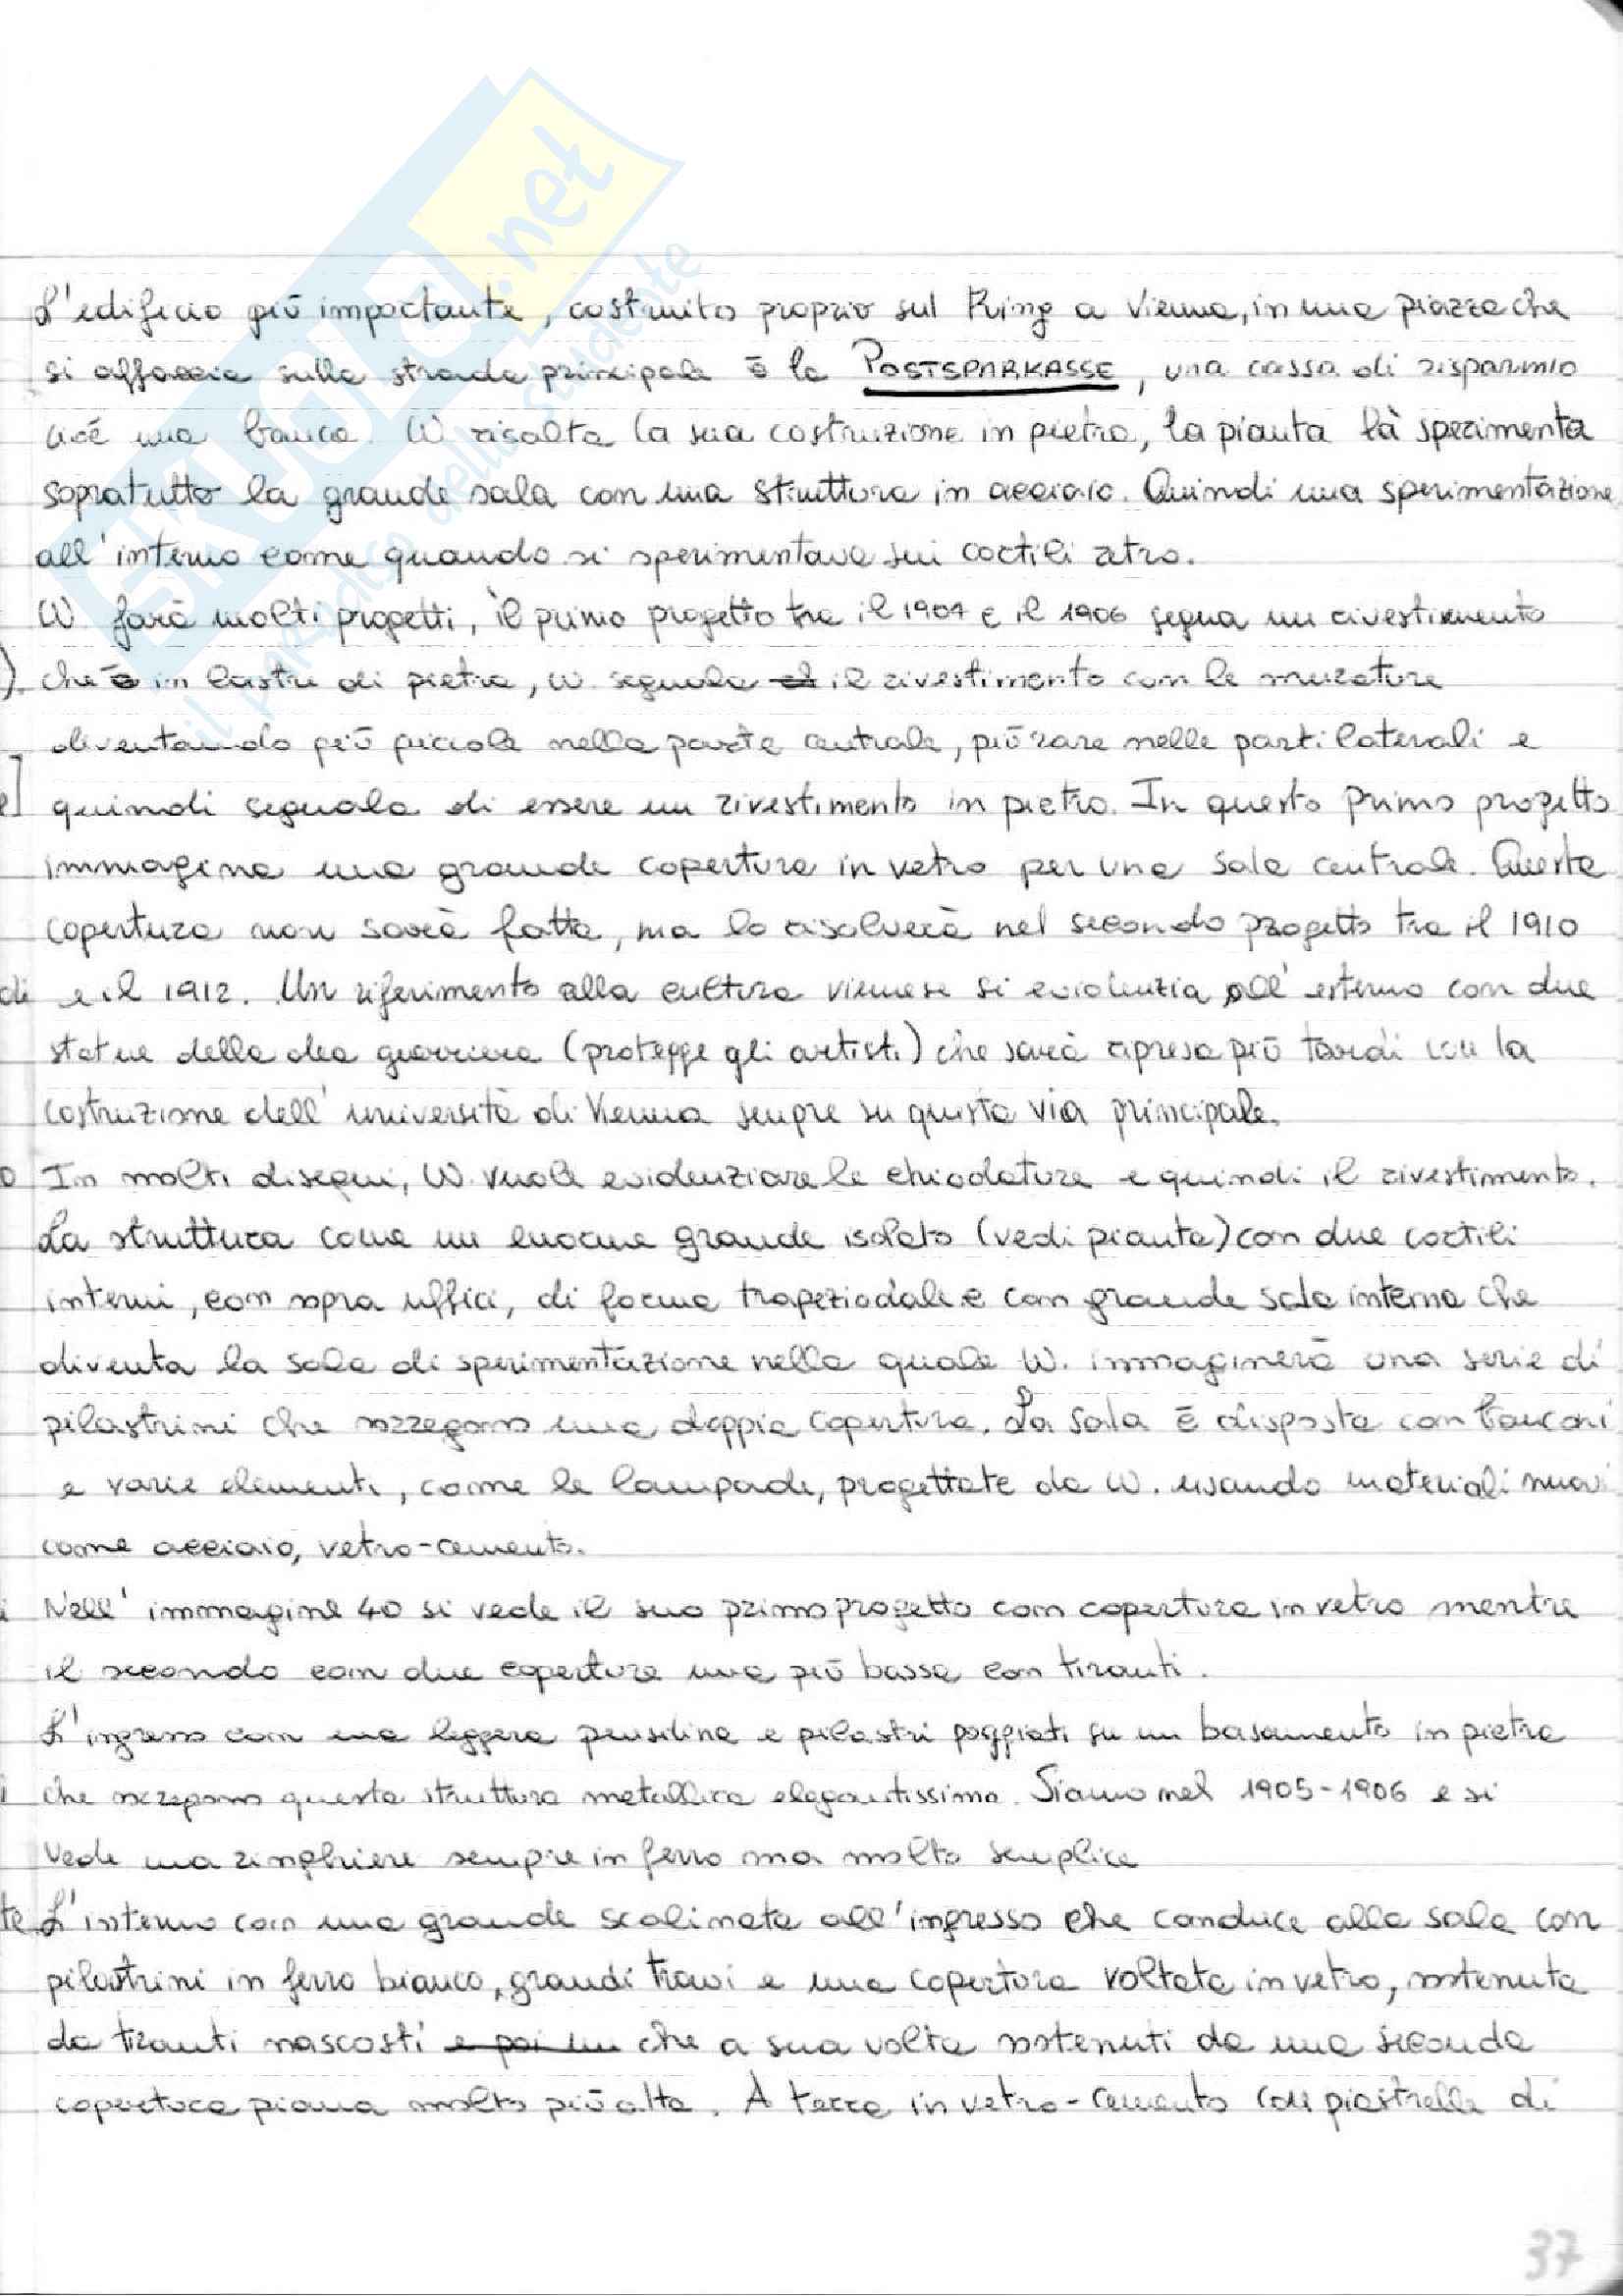 SKUOLA.net
il paradiso dello studente
L'edificio più importante, costruito proprio sul Ring a Vienna, in una piazza che
si affaccia sulla strada principale è la POSTSPARKASSE, una cassa di risparmio
cioè una banca. W risalta la sua costruzione in pietra, la pianta là sperimenta
sopratutto la grande sala con una struttura in acciaio. Quindi una sperimentazione
all'interno come quando si sperimentava sui cortili retro.
W. farà molti progetti, il primo progetto tra il 1904 e il 1906 segna un rivestimento
). che è in lastre di pietra, W. segnala il rivestimento con le murature
diventando più piccole nella parte centrale, più rare nelle parti laterali e
e] quindi segnala di essere un rivestimento in pietra. In questo primo progetto
immagina una grande copertura in vetro per una sala centrale. Questa
copertura non sarà fatta, ma la risolverà nel secondo progetto tra il 1910
di e il 1912. Un riferimento alla cultura viennese si evidenzia all'esterno con due
statue della dea guerriera (protegge gli artisti) che sarà ripresa più tardi con la
costruzione dell'università di Vienna sempre su questa via principale.
o In molti disegni, W. vuole evidenziare le chiodature e quindi il rivestimento.
La struttura come un enorme grande isolato (vedi pianta) con due cortili
interni, con sopra uffici, di forma trapeziodale e con grande sala interna che
diventa la sala di sperimentazione nella quale W. immaginerà una serie di
pilastrini che sorreggono una doppia copertura. La sala è disposta con banconi
e varie elementi, come le lampade, progettate da W. usando materiali nuovi
come acciaio, vetro-cemento.
i Nell'immagine 40 si vede il suo primo progetto con copertura in vetro mentre
il secondo con due coperture una più bassa con tiranti.
L'ingresso con una leggera pensilina e pilastri poggiati su un basamento in pietra
i che sorreggono questa struttura metallica elegantissima. Siamo nel 1905-1906 e si
vede una ringhiere sempre in ferro ma molto semplice
te L'interno con una grande scalinata all'ingresso che conduce alla sala con
pilastrini in ferro bianco, grandi travi e una copertura voltata in vetro, sostenuta
da tiranti nascosti e poi un che a sua volta sostenuti da una seconda
copertura piana molto più alta. A terra in vetro-cemento con piastrelle di
37